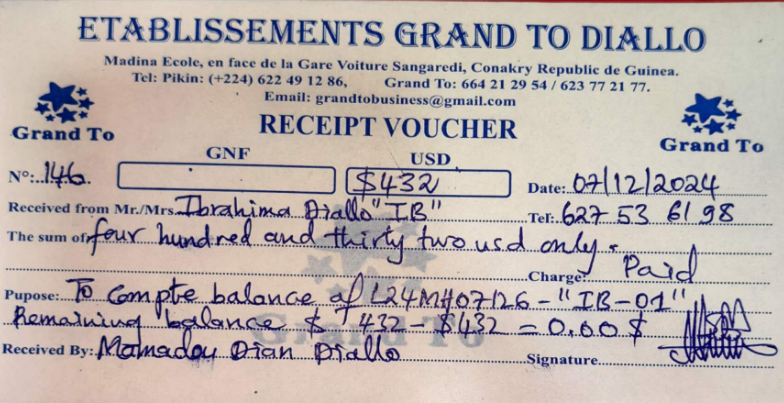 ETABLISSEMENTS GRAND TO DIALLO
Madina Ecole, en face de la Gare Voiture Sangaredi, Conakry Republic de Guinea.
Tel: Pikin: (+224) 622 49 12 86, Grand To: 664 21 29 54 / 623 77 21 77.
Email: grandtobusiness@gmail.com
Grand To
RECEIPT VOUCHER
Grand To
GNF USD
N°: 146. $432 Date: 07/12/2024
Received from Mr./Mrs. Ibrahima Diallo "IB" Tel: 627 53 61 98
The sum of four hundred and thirty two usd only.
Charge: Paid
Pupose: To Compte balance of L24MH07126 - "IB-01"
Remaining balance $ 432 - $432 = 0.00 $
Grand To
Received By: Mamadou Dian Diallo Signature